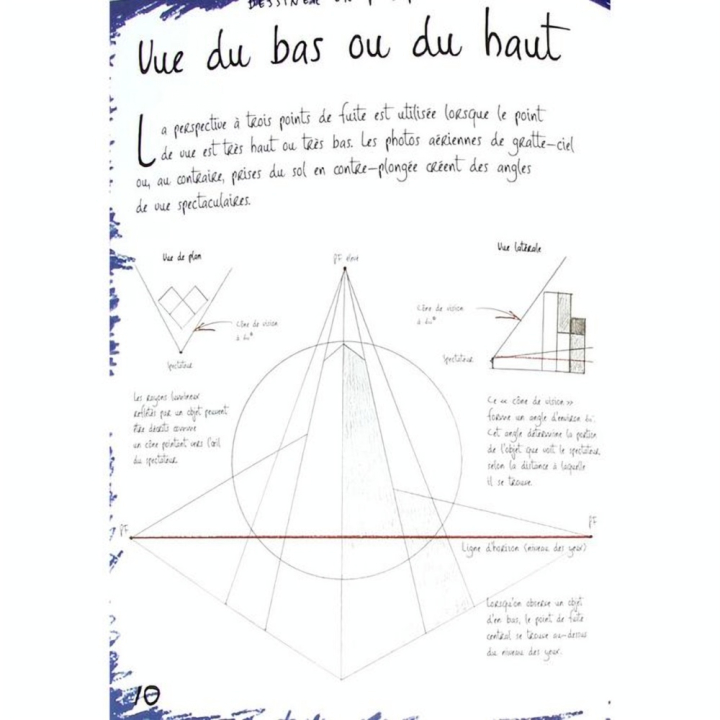 DESSINER EN
Vue du bas ou du haut
La perspective à trois points de fuite est utilisée lorsque le point
de vue est très haut ou très bas. Les photos aériennes de gratte-ciel
ou, au contraire, prises du sol en contre-plongée créent des angles
de vue spectaculaires.
Vue de plan
Cône de vision
à 60°
Spectateur
PF élevé
Vue latérale
Cône de vision
à 60°
Spectateur
Les rayons lumineux
reflétés par un objet peuvent
être décrits comme
un cône pointant vers l'œil
du spectateur.
Ce « cône de vision »
forme un angle d'environ 60°.
Cet angle détermine la portion
de l'objet que voit le spectateur,
selon la distance à laquelle
il se trouve.
PF
PF
Ligne d'horizon (niveau des yeux)
Lorsqu'on observe un objet
d'en bas, le point de fuite
central se trouve au-dessus
du niveau des yeux.
10